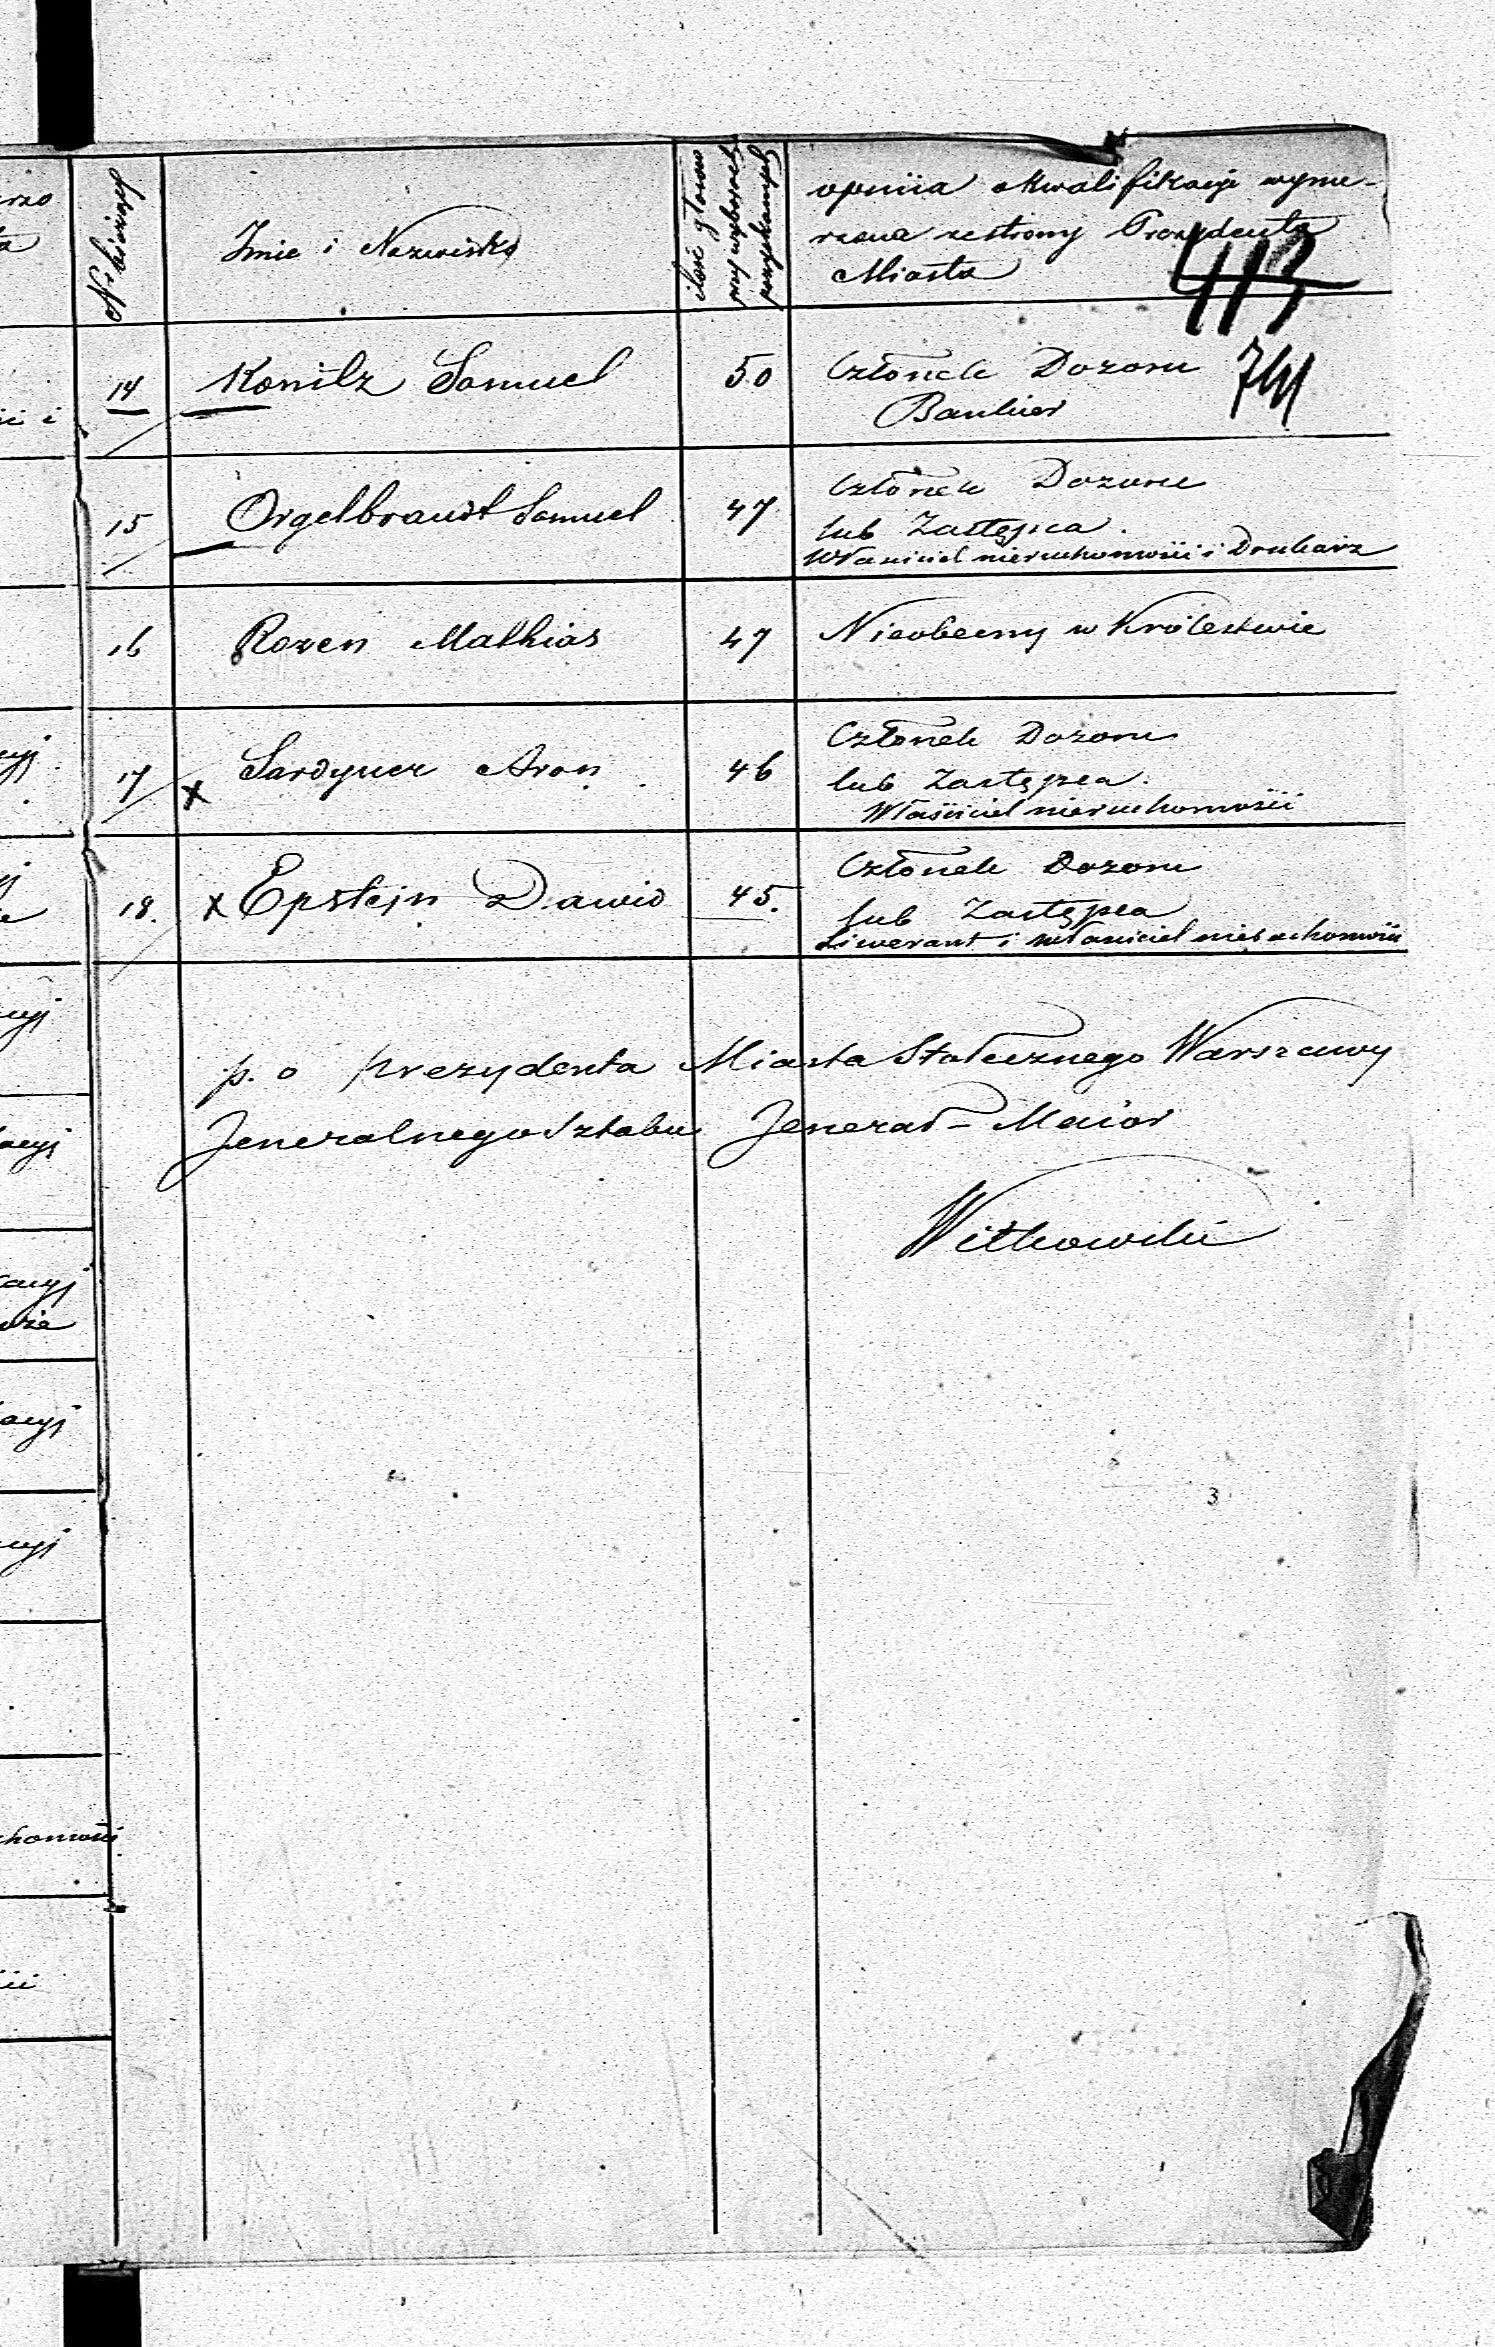 No bieżący
Imie i Nazwisko
ilość głosów
przy wyborach
pozyskanych
opinia o kwalifikacji wymie-
rzona ze strony Prezydenta
Miasta
413
741
14 Konitz Samuel 50 Członek Dozoru
Bankier
15 Orgelbrandt Samuel 47 Członek Dozoru
lub Zastępca.
Właściciel nieruchomości i Drukarz
16 Rozen Mathias 47 Nieobecny w Królestwie
17 x Sardyner Aron 46 Członek Dozoru
lub Zastępca.
Właściciel nieruchomości
18. x Epstejn Dawid 45. Członek Dozoru
lub Zastępca
Liwerant i właściciel nieruchomości
p. o prezydenta Miasta Stołecznego Warszawy
Jeneralnego Sztabu Jenerał-Maior
Witkowski